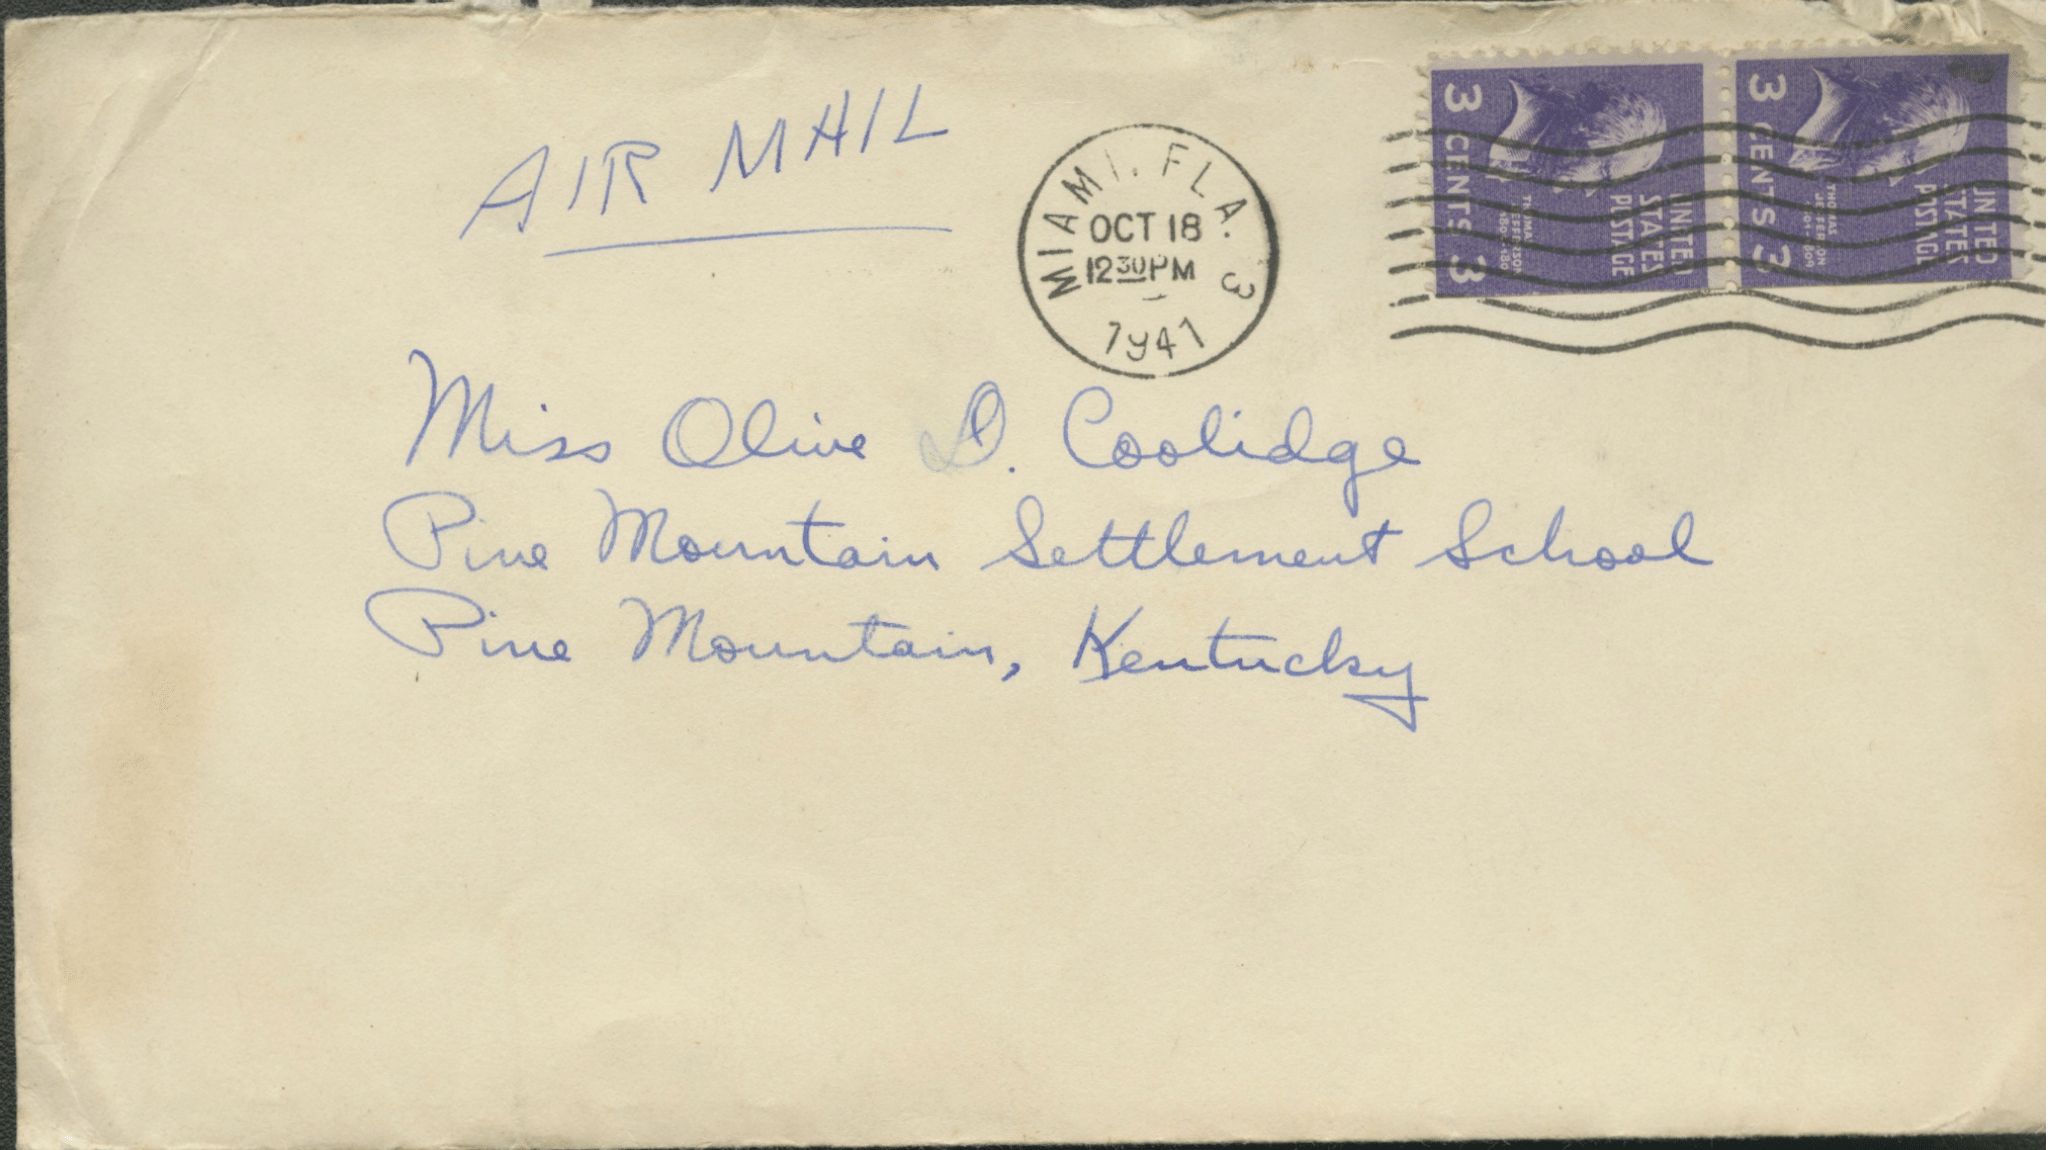 AIR MAIL
MIAMI, FLA. 3
OCT 18
12 30 PM
1941
3 CENTS 3
THOMAS JEFFERSON
UNITED
STATES
POSTAGE
3 CENTS 3
THOMAS
JEFFERSON
1801-1809
UNITED
STATES
POSTAGE
Miss Olive D. Coolidge
Pine Mountain Settlement School
Pine Mountain, Kentucky